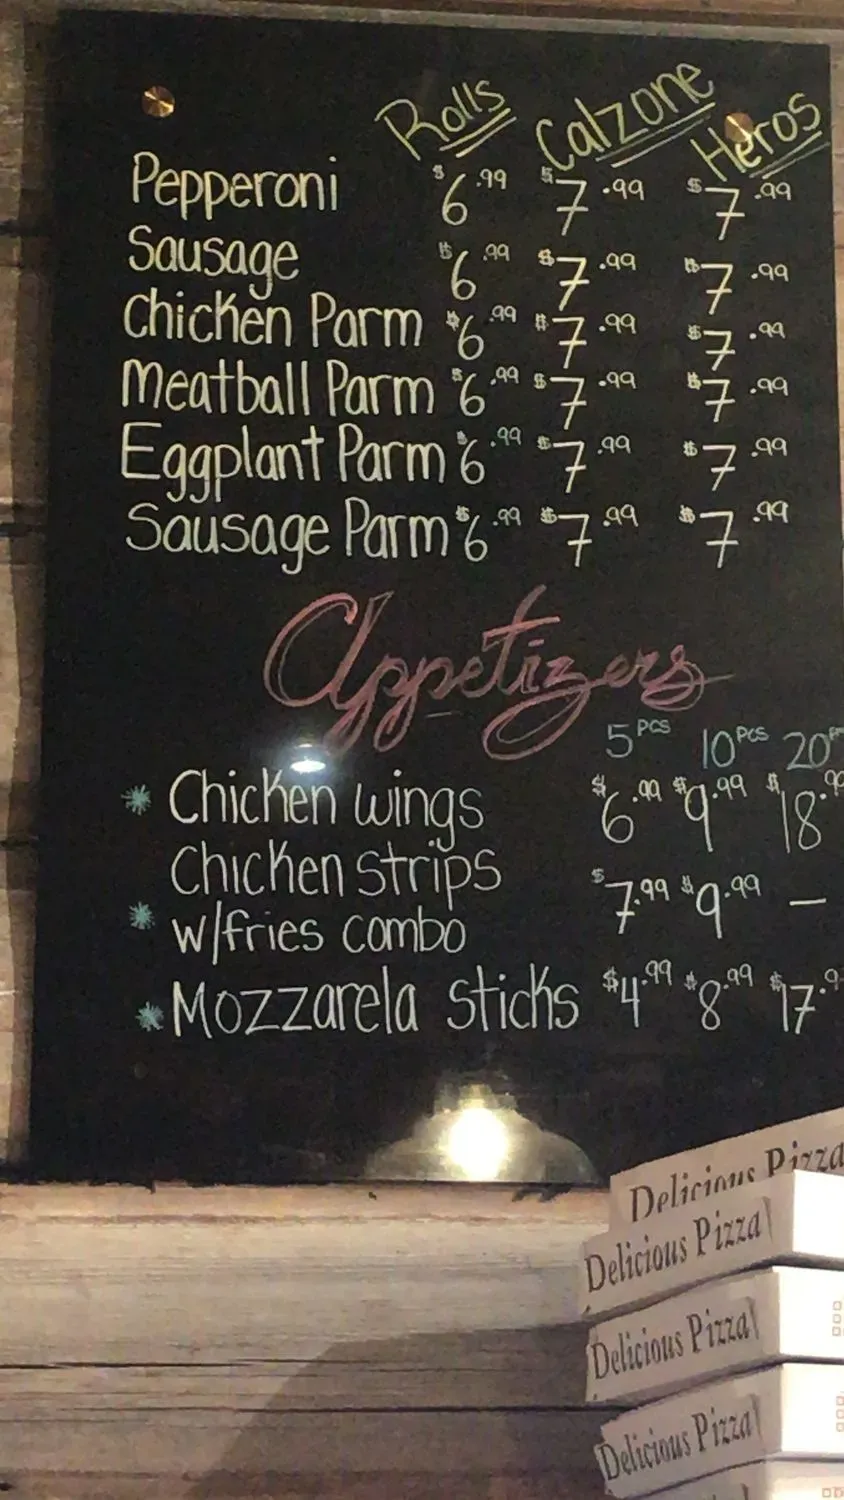 Rolls Calzone Heros
Pepperoni $6.99 $7.99 $7.99
Sausage $6.99 $7.99 $7.99
Chicken Parm $6.99 $7.99 $7.99
Meatball Parm $6.99 $7.99 $7.99
Eggplant Parm $6.99 $7.99 $7.99
Sausage Parm $6.99 $7.99 $7.99
Appetizers
5 PCS 10 PCS 20
* Chicken wings $6.99 $9.99 $18.9
Chicken strips
* w/fries combo $7.99 $9.99 —
* Mozzarela Sticks $4.99 $8.99 $17.9
Delicious Pizza
Delicious Pizza
Delicious Pizza
Delicious Pizza